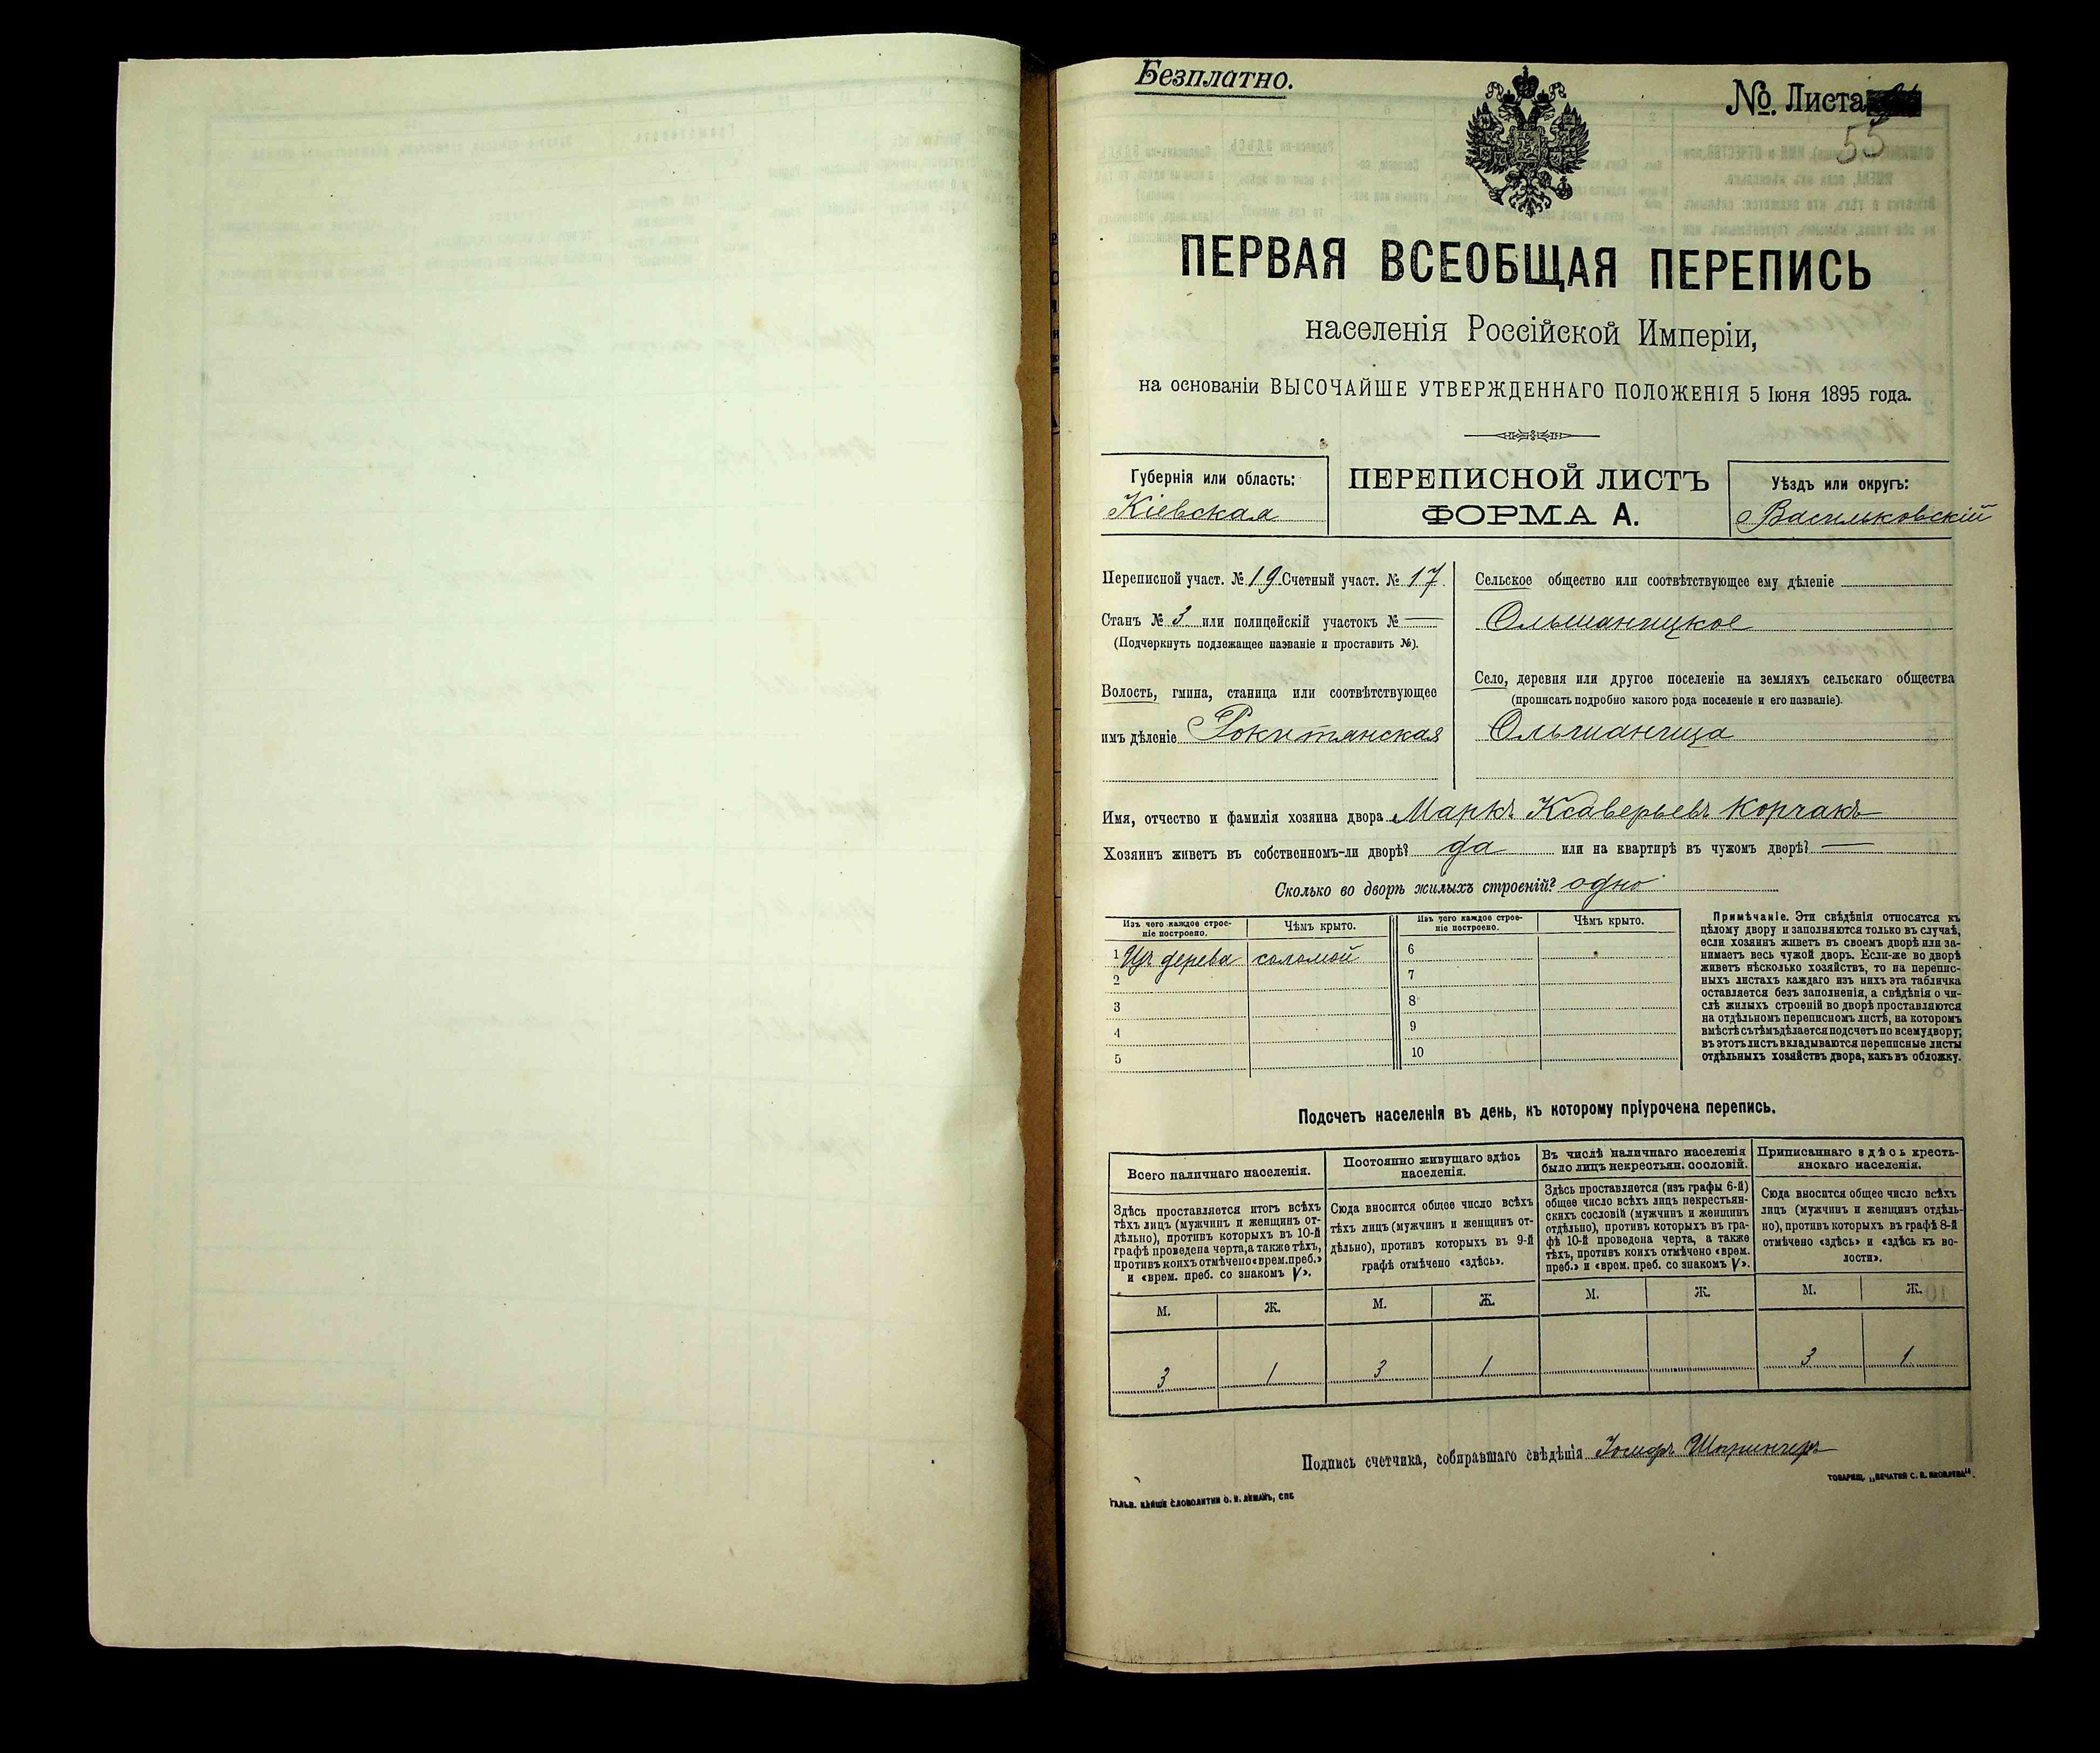 Безплатно.
№. Листа
55
ПЕРВАЯ ВСЕОБЩАЯ ПЕРЕПИСЬ
населенія Россійской Имперіи,
на основаніи ВЫСОЧАЙШЕ УТВЕРЖДЕННАГО ПОЛОЖЕНІЯ 5 Іюня 1895 года.
Губернія или область:
Кіевская
ПЕРЕПИСНОЙ ЛИСТЪ
ФОРМА А.
Уѣздъ или округъ:
Васильковскій
Переписной участ. № 19 Счетный участ. № 17.
Станъ № 3 или полицейскій участокъ № —
(Подчеркнуть подлежащее названіе и проставить №).
Волость, гмина, станица или соотвѣтствующее
имъ дѣленіе Рокитянская
Сельское общество или соотвѣтствующее ему дѣленіе
Ольшаницкое
Село, деревня или другое поселеніе на земляхъ сельскаго общества
(прописать подробно какого рода поселеніе и его названіе).
Ольшаница
Имя, отчество и фамилія хозяина двора Маркъ Ксаверьевъ Корчакъ
Хозяинъ живетъ въ собственномъ-ли дворѣ? да или на квартирѣ въ чужомъ дворѣ? —
Сколько во дворѣ жилыхъ строеній? одно
Изъ чего каждое строе-
ніе построено.
Чѣмъ крыто.
Изъ чего каждое строе-
ніе построено.
Чѣмъ крыто.
1 Изъ дерева соломой
2
3
4
5
6
7
8
9
10
Примѣчаніе. Эти свѣдѣнія относятся къ
цѣлому двору и заполняются только въ случаѣ,
если хозяинъ живетъ въ своемъ дворѣ или за-
нимаетъ весь чужой дворъ. Если-же во дворѣ
живетъ нѣсколько хозяйствъ, то на перепис-
ныхъ листахъ каждаго изъ нихъ эта табличка
оставляется безъ заполненія, а свѣдѣнія о чи-
слѣ жилыхъ строеній во дворѣ проставляются
на отдѣльномъ переписномъ листѣ, на которомъ
вмѣстѣ съ тѣмъ дѣлается подсчетъ по всему двору;
въ этотъ листъ вкладываются переписные листы
отдѣльныхъ хозяйствъ двора, какъ въ обложку.
Подсчетъ населенія въ день, къ которому пріурочена перепись.
Всего наличнаго населенія.
Здѣсь проставляется итогъ всѣхъ
тѣхъ лицъ (мужчинъ и женщинъ от-
дѣльно), противъ которыхъ въ 10-й
графѣ проведена черта, а также тѣхъ,
противъ коихъ отмѣчено «врем. преб.»
и «врем. преб. со знакомъ V».
М. Ж.
3 1
Постоянно живущаго здѣсь
населенія.
Сюда вносится общее число всѣхъ
тѣхъ лицъ (мужчинъ и женщинъ от-
дѣльно), противъ которыхъ въ 9-й
графѣ отмѣчено «здѣсь».
М. Ж.
3 1
Въ числѣ наличнаго населенія
было лицъ некрестьян. сословій.
Здѣсь проставляется (изъ графы 6-й)
общее число всѣхъ лицъ некрестьян-
скихъ сословій (мужчинъ и женщинъ
отдѣльно), противъ которыхъ въ гра-
фѣ 10-й проведена черта, а также
тѣхъ, противъ коихъ отмѣчено «врем.
преб.» и «врем. преб. со знакомъ V».
М. Ж.
Приписаннаго здѣсь кресть-
янскаго населенія.
Сюда вносится общее число всѣхъ
лицъ (мужчинъ и женщинъ отдѣль-
но), противъ которыхъ въ графѣ 8-й
отмѣчено «здѣсь» и «здѣсь къ во-
лости».
М. Ж.
3 1
Подпись счетчика, собиравшаго свѣдѣнія Іосифъ
ТОВАРИЩ. „ПЕЧАТНЯ С. П. ЯКОВЛЕВА“.
СЛОВОЛИТНИ О. И. ЛЕМАНЪ, СПБ